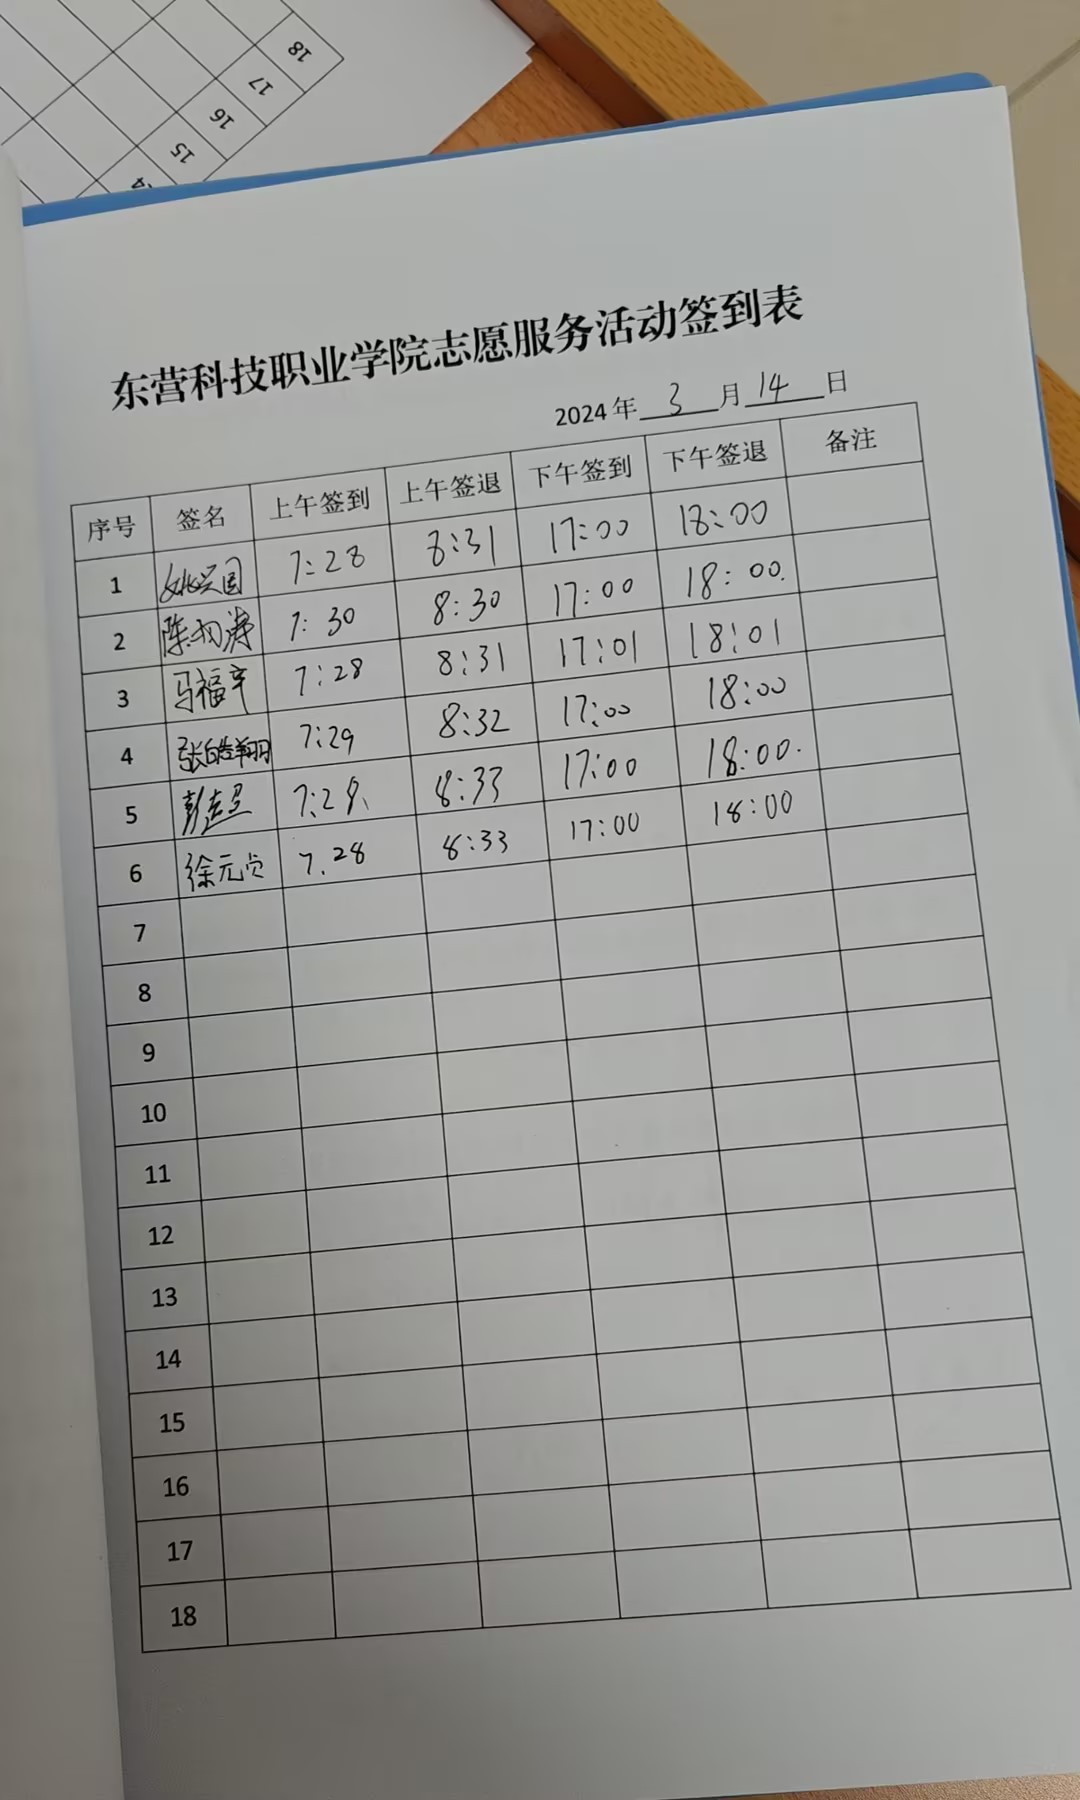 18
17
16
15
东营科技职业学院志愿服务活动签到表
2024年 3 月 14 日
序号 签名 上午签到 上午签退 下午签到 下午签退 备注
1 姚兴国 7:28 8:31 17:00 18:00
2 陈 涛 7:30 8:30 17:00 18:00.
3 马福辛 7:28 8:31 17:01 18:01
4 张皓翔 7:29 8:32 17:00 18:00
5 彭 7:28 8:33 17:00 18:00.
6 徐元 7.28 8:33 17:00 18:00
7
8
9
10
11
12
13
14
15
16
17
18